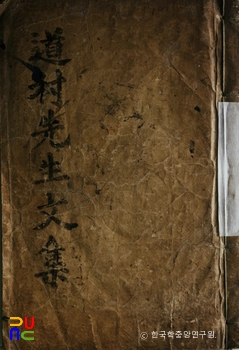 道村先生文集
© 한국학중앙연구원